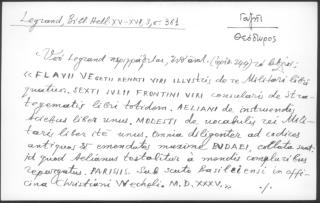 Legrand, Bibl. Hell. XV-XVI, 3, σ 361
Γαζῆς
Θεόδωρος
Legrand
« FLAVII VEGETII RENATI VIRI ILLUSTRIS de re Militari libri
quatuor. SEXTI IULII FRONTINI VIRI consularis de Stra-
tagematis libri totidem. AELIANI de instruendis
aciebus liber unus. MODESTI de vocabulis rei Mili-
taris liber itē unus. Omnia diligenter ad codices
antiquos & emendatos maxime BUDAEI, collata sunt
id quod Aelianus testabitur a mendis compluribus
repurgatus. PARISIIS. Sub scuto Basiliensi in offi-
cina Christiani Wecheli. M.D.XXXV.» ./.